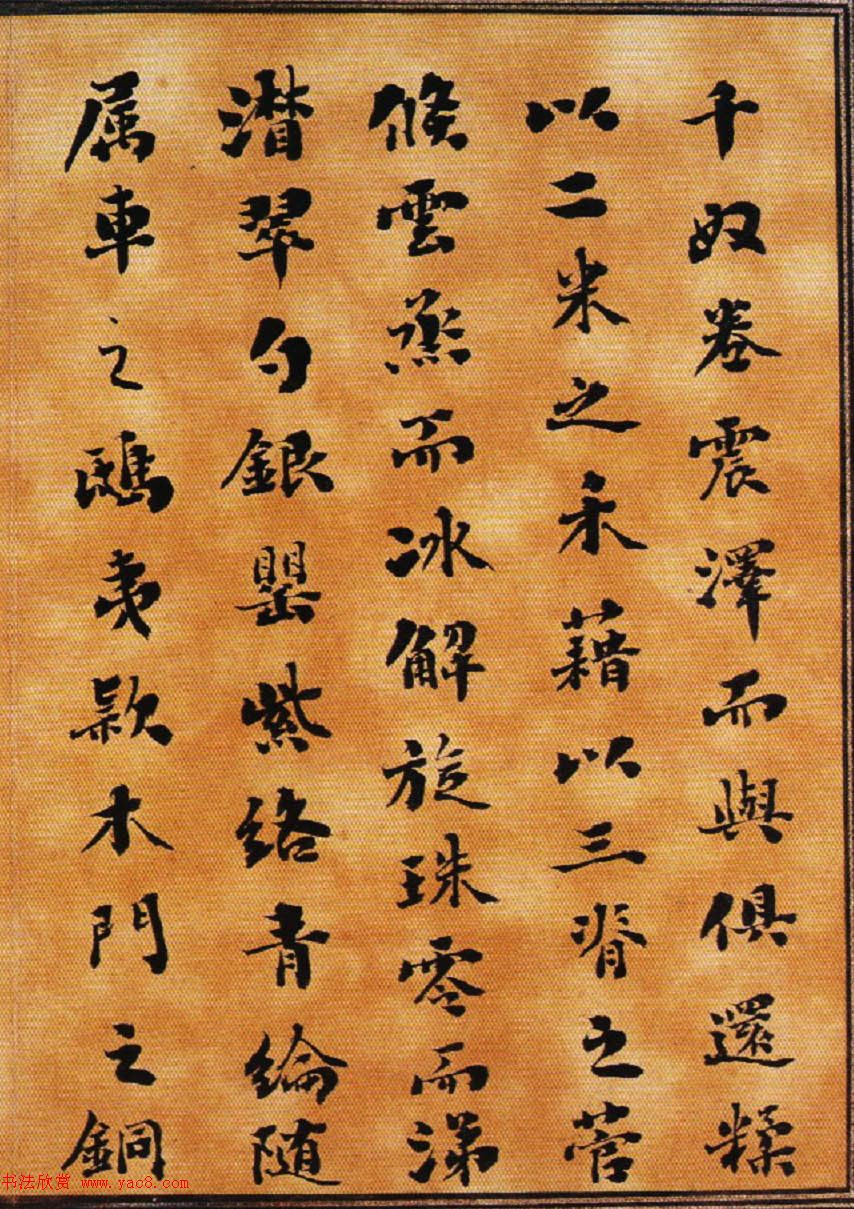 千奴卷震澤而與俱還糅
以二米之禾藉以三脊之菅
倏雲烝而冰解旋珠零而涕
潸翠勺銀罌紫絡青綸随
属車之鴟夷款木門之銅
书法欣赏 www.yac8.com